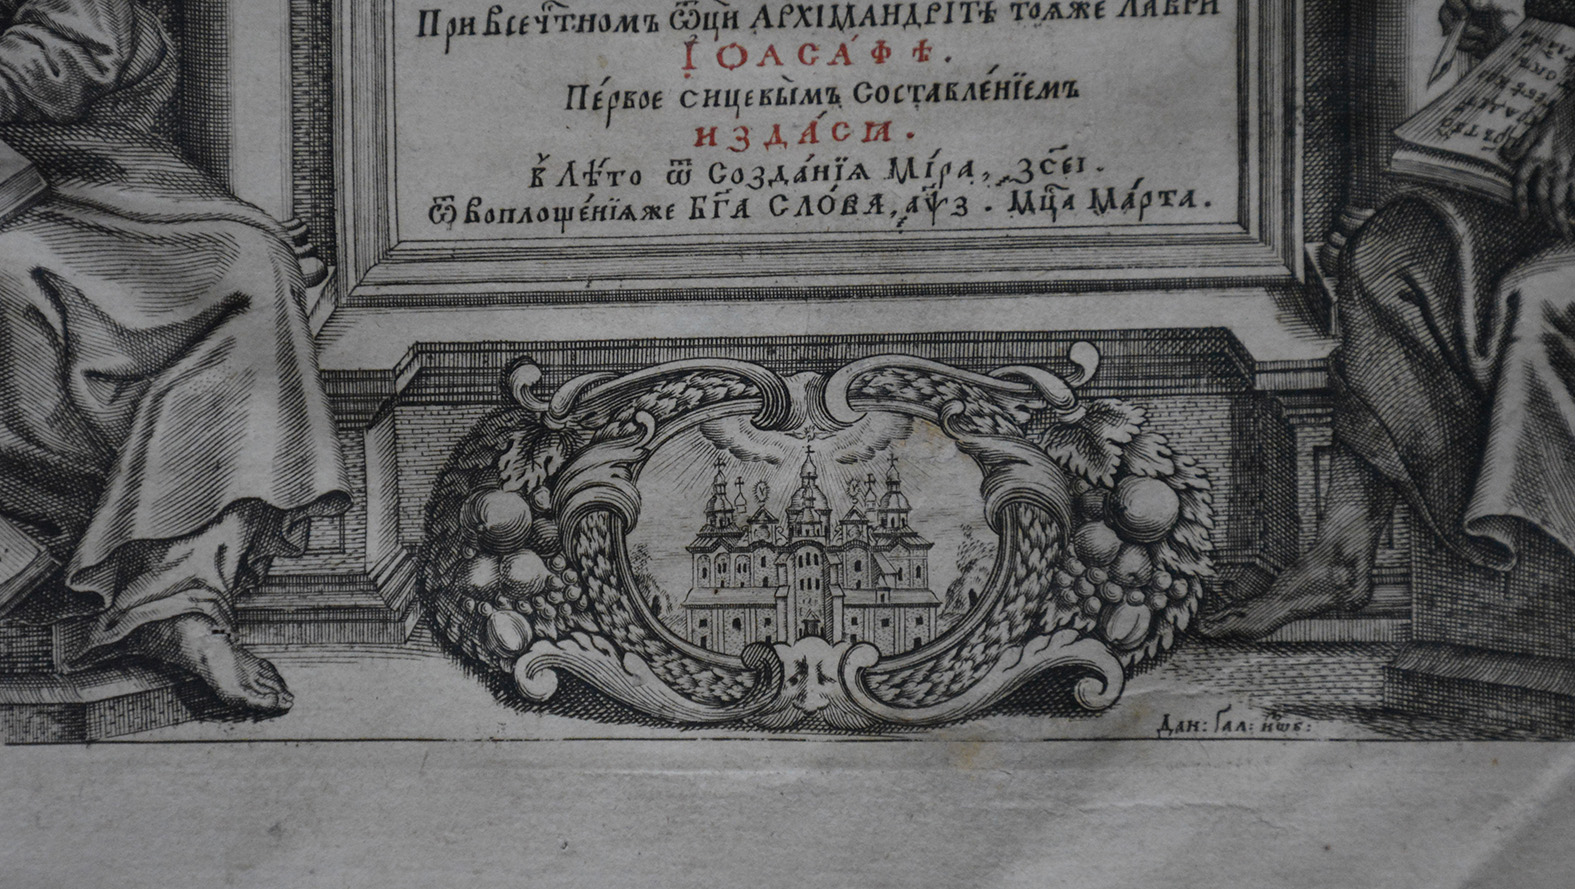 При всеч҇тномъ Ѿц҃и АРХІМАНДРІТѢ тоѧже ЛаѴри
ІОАСА́ФѢ.
Пе́рвое сицевы́мъ Составле́нїемъ
ИЗДА́СІѦ.
в̾ Лѣ́то ѿ Созда́нїѧ Мі́ра, ҂зс҃еі.
Ѿ воплоще́нїѧже Бг҃а СЛО́ВА, ҂аѱ҃з. Мц҇а Ма́рта.
Дан: Гал: